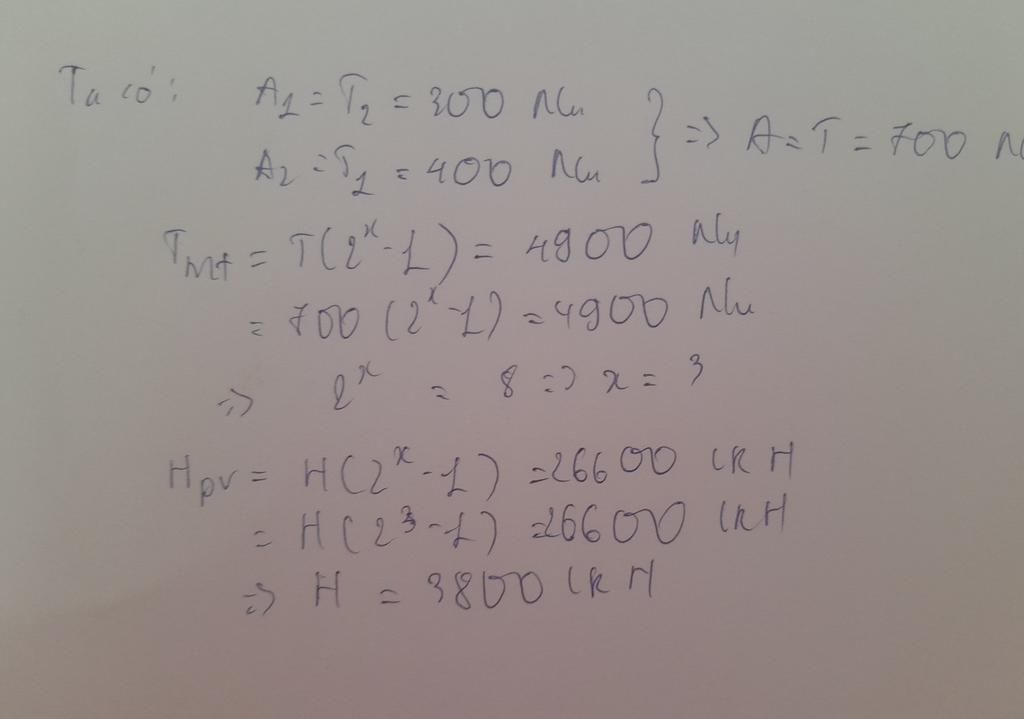 Ta có: A1 = T2 = 300 Nu
A2 = T1 = 400 Nu } => A = T = 700 Nu
Tmt = T(2^x - 1) = 4900 Nu
= 700 (2^x - 1) = 4900 Nu
=> 2^x = 8 => x = 3
Hpv = H(2^x - 1) = 26600 lk H
= H(2^3 - 1) = 26600 lk H
=> H = 3800 lk H